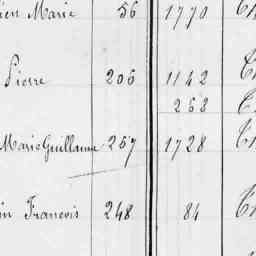 Marie 56 1770
Pierre 206 1142
268
Marie Guillaume 257 1728
François 248 84